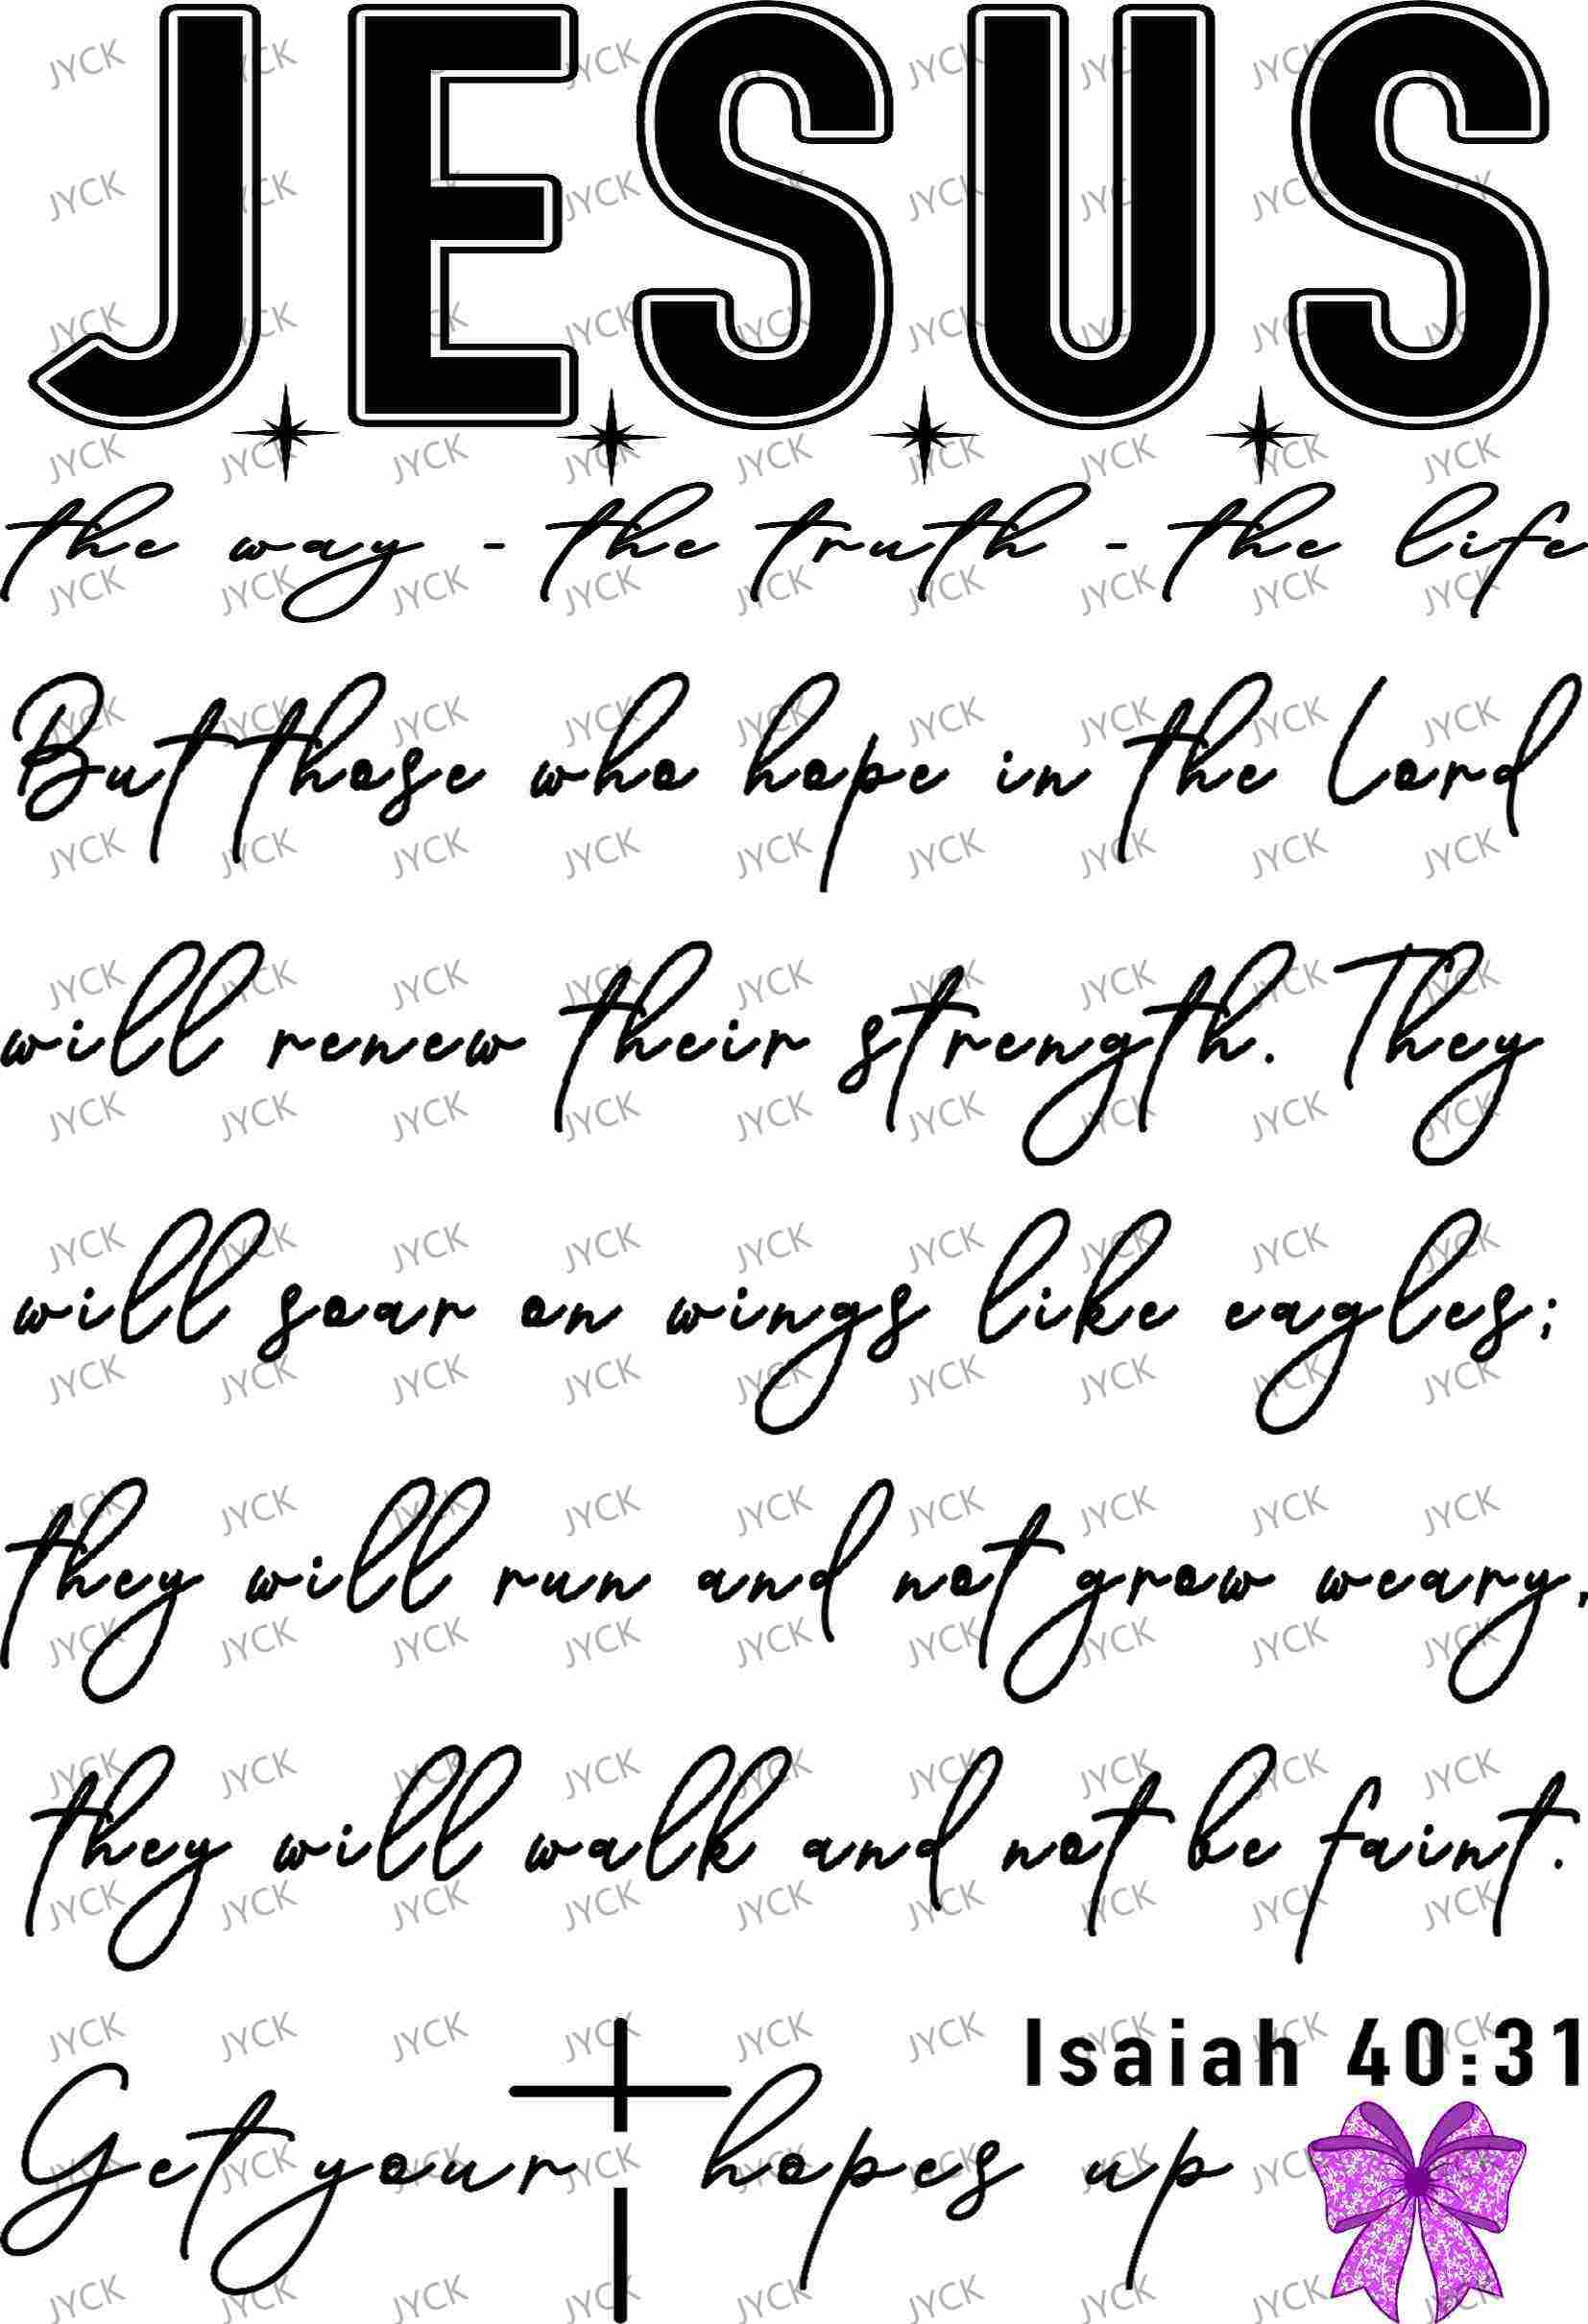 JESUS
the way - the truth - the life
But those who hope in the Lord
will renew their strength. They
will soar on wings like eagles;
they will run and not grow weary,
they will walk and not be faint.
Isaiah 40:31
Get your hopes up
JYCK